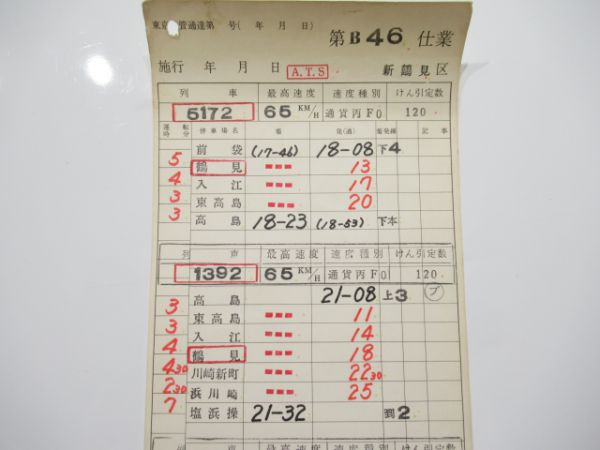 東京 管通達第 号( 年 月 日)
第 B 46 仕業
施行 年 月 日 A.T.S 新鶴見区
列車 最高速度 速度種別 けん引定数
5172 65 KM/H 通貨丙F0 120
運転時分 停車場名 着 発(通) 着発線 記事
前袋 (17-46) 18-08 下4
5 鶴見 13
4 入江 17
3 東高島 20
3 高島 18-23 (18-53) 下本
列車 最高速度 速度種別 けん引定数
1392 65 KM/H 通貨丙F0 120
高島 21-08 上3 プ
3 東高島 11
3 入江 14
4 鶴見 18
4 30 川崎新町 22 30
2 30 浜川崎 25
7 塩浜操 21-32 到2
列車 最高速度 速度種別 けん引定数